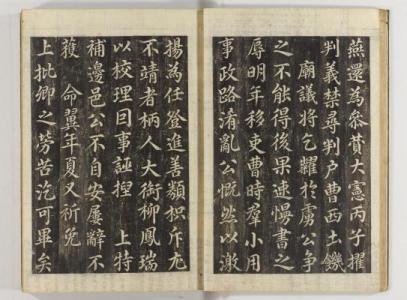 燕還為參賛大憲丙子擢
判義禁尋判户曹西土饑
廟議將乞糶於虜公爭
之不能得後果速慢書之
辱明年移吏曹時羣小用
事政路淆亂公慨然以激
揚為任登進善類枳斥尤
不靖者柄人大銜柳鳳瑞
以校理回事誣捏 上特
補邊邑公不自安屢辭不
獲 命翼年夏又祈免
上批卿之勞苦汔可畢矣